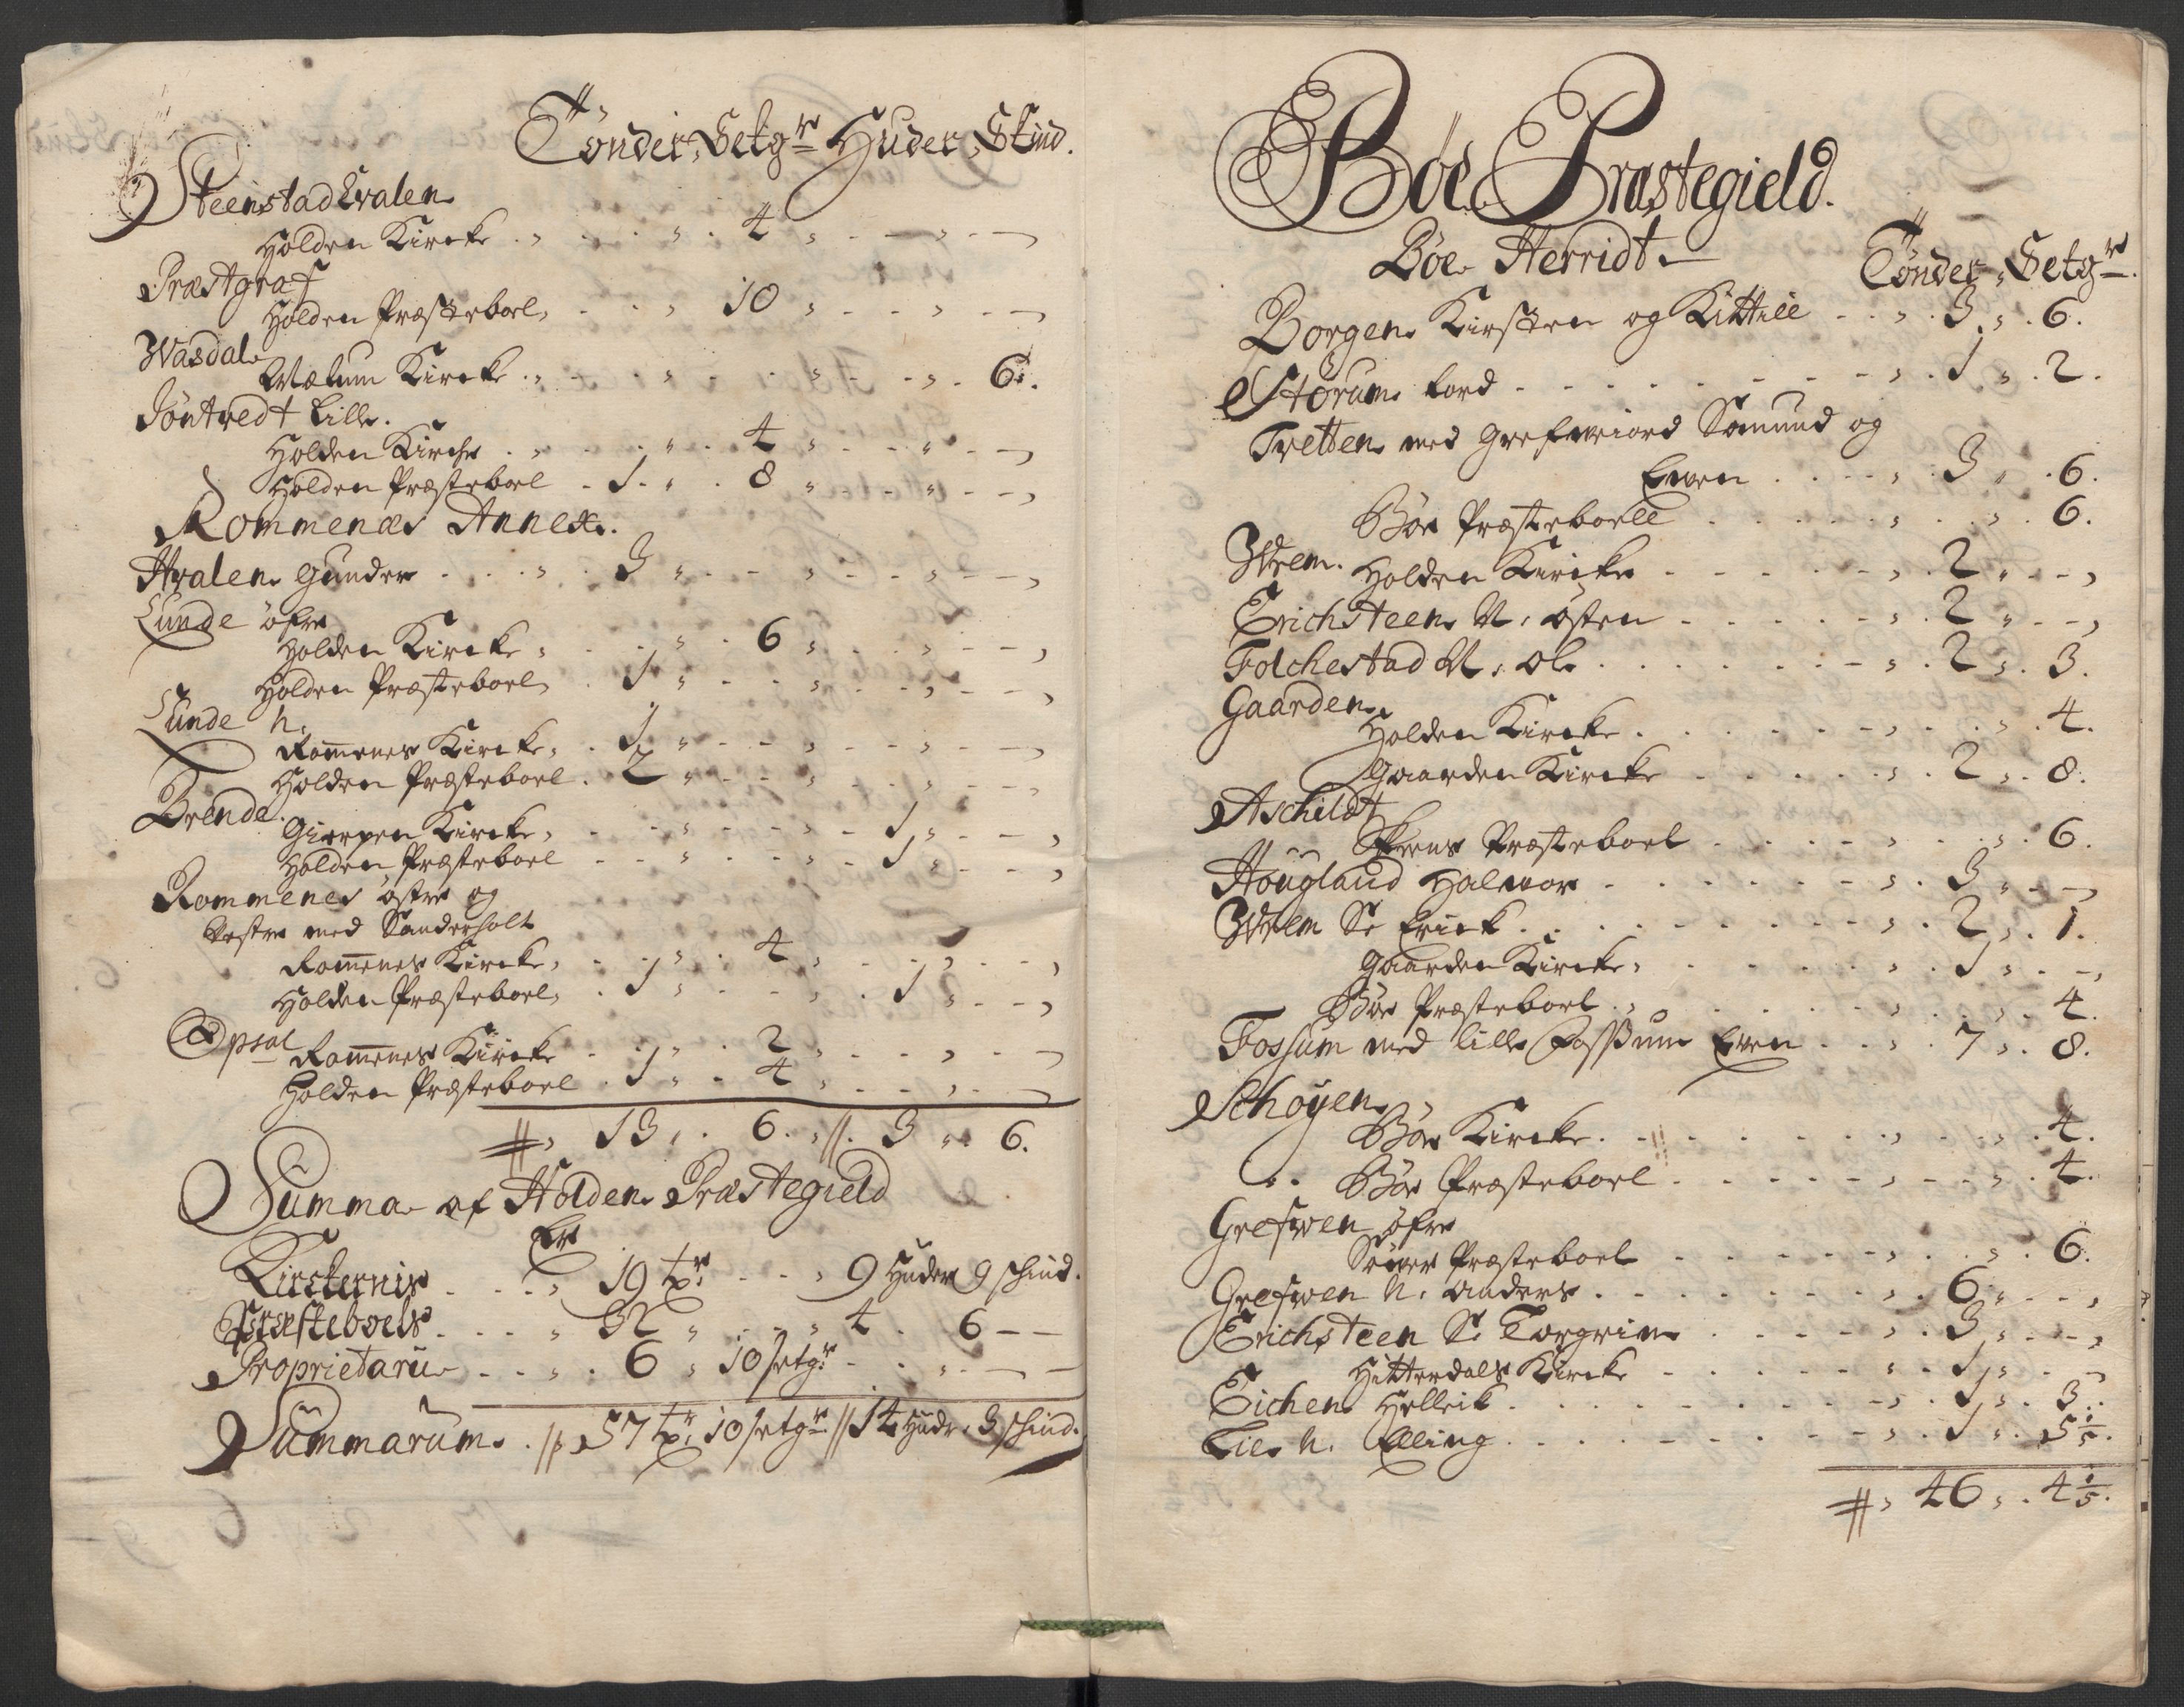 Tönder, Setgr Huder, Skind.
Steenstad Evalen
Holden Kircke . „ . . . „ . 4 „ . – – „ – –,
Præstgraf
Holden Præsteboel, . – . „ 10 „ . – – „ – –,
Wasdal
Kircke . „ – . „ . – . „ – . „ . 6.
Jöntvedt Lille.
Holden Kirche . „ . . „ . 4 „ . – . „ . –,
Holden Præsteboel . 1 . „ . 8 „ . – . „ – –,
Rommenes Annex.
Hvalen Gunder . . . „ . 3 „ . – – „ . – – „ – –,
Lunde öfre
Holden Kircke „ . . – „ . 6 „ . . – „ – –,
Holden Præsteboel, . 1 „ . – . „ . – . „ . – –,
Lunde N.
Romenes Kircke, . 1 „ – – „ . – – „ – –,
Holden Præsteboel . 2 „ – – „ . – . „ – –,
Brende.
Gierpen Kircke, . – . „ . – – . 1 „ . – –,
Holden Præsteboel . – . „ . – . „ . – . 1 „ . – –,
Rommenes östre og
Vestre med Sanderholt
Romenes Kircke, . – . „ . 4 „ . – . „ . – –,
Holden Præsteboel, . 1 „ . – . „ . 1 „ . – –,
Opsal
Romenes Kircke . – . „ . 2 „ . – . „ . –
Holden Præsteboel . 1 „ . 4 „ . – . „ . –
„ 13 „ . 6. „ // . 3 „ . 6.
Summa af Holden Præstegield
Er
Kirckernis . . . „ 19 tr. . – . „ 9 Huder 9 skind.
Præsteboels . . . „ 32 „ . – . „ 4 . 6 – –
Proprietarii . . . „ . 6 „ 10 setgr. – . . „ . – –
Summarum. // 57 tr. 10 setgr // 14 Hudr. 3 skind.
Böe Præstegield.
Böe Herridt.
Tönder, Setgr.
Borgen Kirsten og Kittill . . „ . 3 „ . 6.
Störum Lord . – . – . – . – . „ . 1 „ . 2.
Tretten med Grefveiord Somund og
Even . . – . „ . 3 „ . 6.
Böe Præsteboell . – . – . „ . – . „ . 6.
Wrem. Holden Kircke . – . – . – . „ . 2 „ . – –,
Erichsteen N. östen . – . – . – . „ . 2 „ . – –,
Folchestad N. Ole . – . – . – . „ . 2 „ . 3.
Gaarden.
Holden Kircke . – . – . – . „ . – . „ . 4.
Gaarden Kircke . – . – . – . „ . 2 „ . 8.
Aschildt
Skeens Præsteboel . – . – . „ . – . „ . 6.
Hougland Halvor . – . – . – . „ . 3 „ . – –,
Wrem S. Erick . – . – . – . – . „ . 2 „ . 1.
Gaarden Kircke, . – . – . „ . 1 „ . – –,
Böe Præsteboel . „ . – . – . „ . – . „ . 4.
Fossum med lille Fossum Even . . „ . 7 „ . 8.
Schoyen.
Böe Kircke . – . – . – . „ . – . „ . 4.
Böe Præsteboel . – . – . – . „ . – . „ . 4.
Grefwen öfre
Præsteboel . – . – . – . „ . – . „ . 6.
Grefwen N. Anders . – . – . – . „ . 6 „ . – –,
Erichsteen S. Torgrim . – . – . „ . 3 „ . – –,
Hitterdals Kircke . – . – . „ . 1 „ . – –,
Eichen Hellik . – . – . – . – . „ . 1 „ . 3.
Lie N. Elling . – . – . – . – . „ . 1 „ . 5 1/5.
„ 46 „ . 4 1/5.